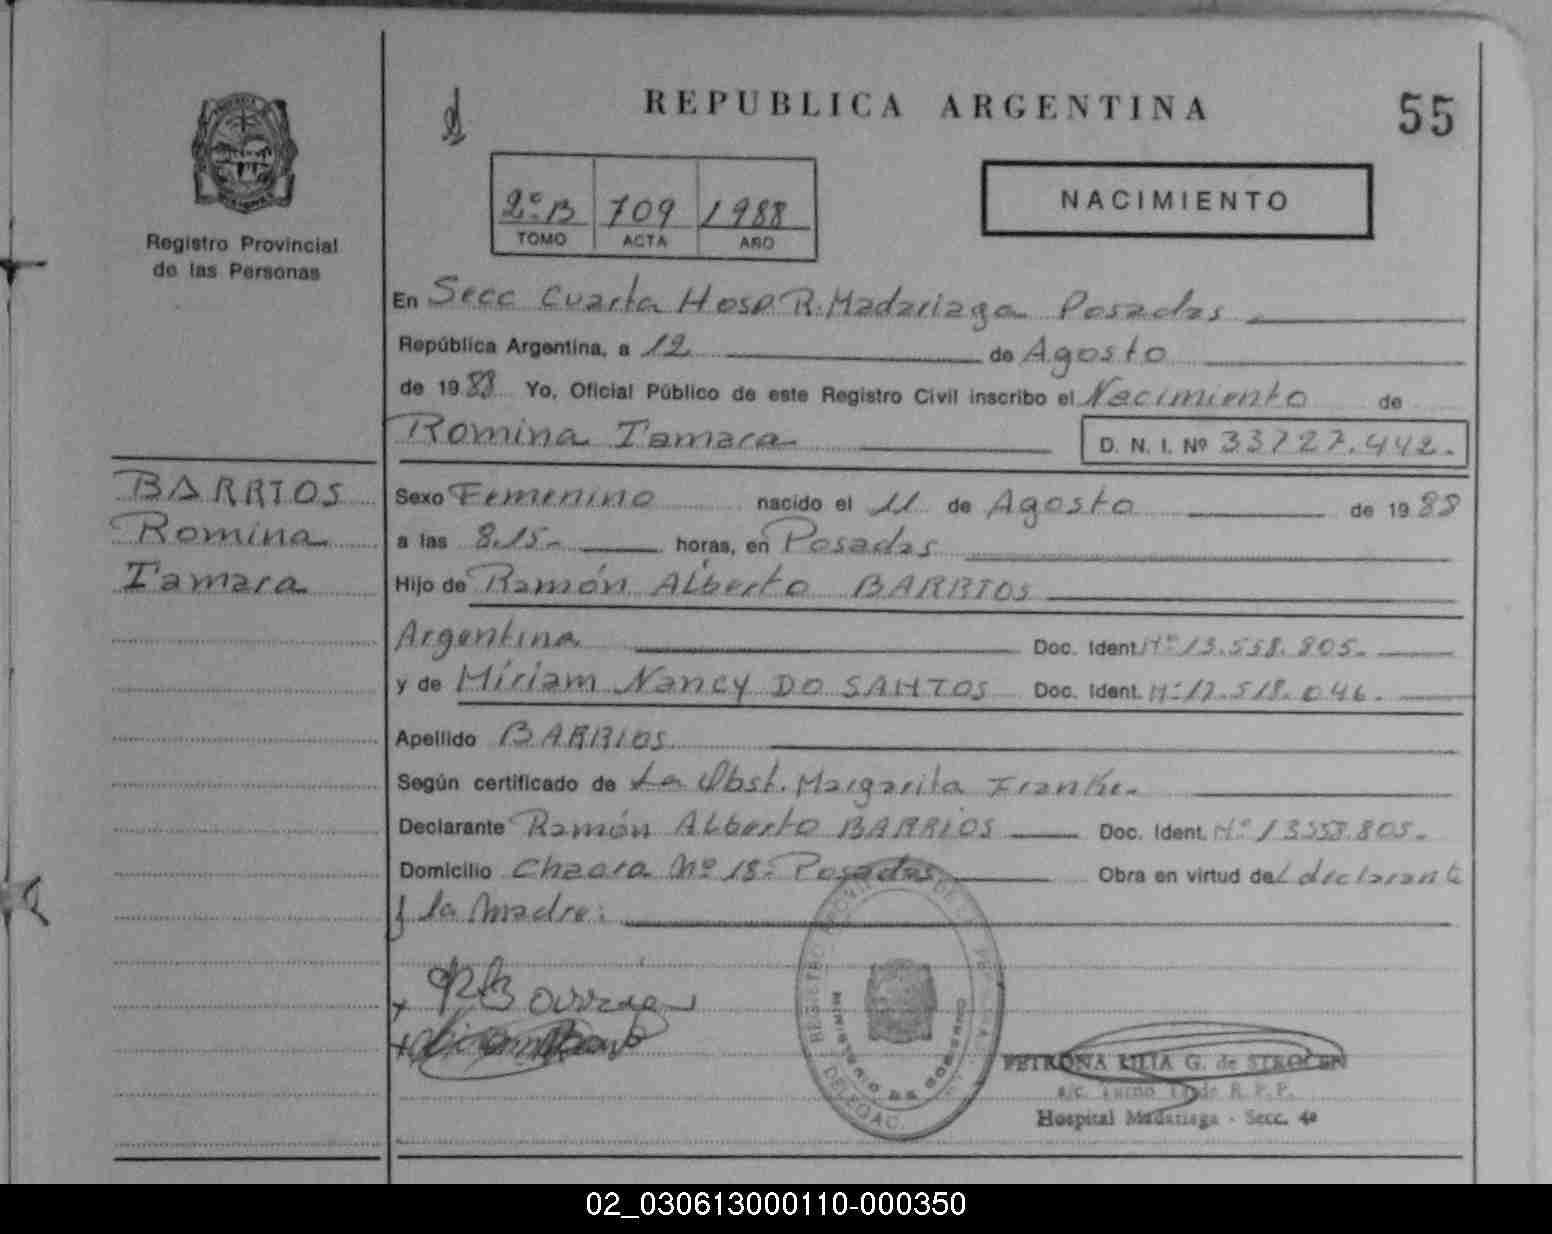 REPUBLICA ARGENTINA
55
Registro Provincial
de las Personas
2º B 709 1988
TOMO ACTA AÑO
NACIMIENTO
En Secc Cuarta Hosp. R. Madariaga Posadas
República Argentina, a 12 de Agosto
de 1988 Yo, Oficial Público de este Registro Civil inscribo el Nacimiento de
Romina Tamara D. N. I. Nº 33727.442.
BARRIOS
Romina
Tamara
Sexo Femenino nacido el 11 de Agosto de 1988
a las 8.15- horas, en Posadas
Hijo de Ramón Alberto BARRIOS
Argentina Doc. Ident. Nº 13.558.805.
y de Miriam Nancy DO SANTOS Doc. Ident. Nº 17.518.046.
Apellido BARRIOS
Según certificado de La Obst. Margarita Franke.
Declarante Ramón Alberto BARRIOS Doc. Ident. Nº 13558.805.
Domicilio Chacra Nº 18- Posadas Obra en virtud del declarante
y la madre:
REGISTRO PROVINCIAL DE LAS PERSONAS
MINISTERIO DE GOBIERNO
DELEGAC.
PETRONA LILIA G. de STROCEN
a/c. Turno Tarde R. P. P.
Hospital Madariaga - Secc. 4ª
02_030613000110-000350